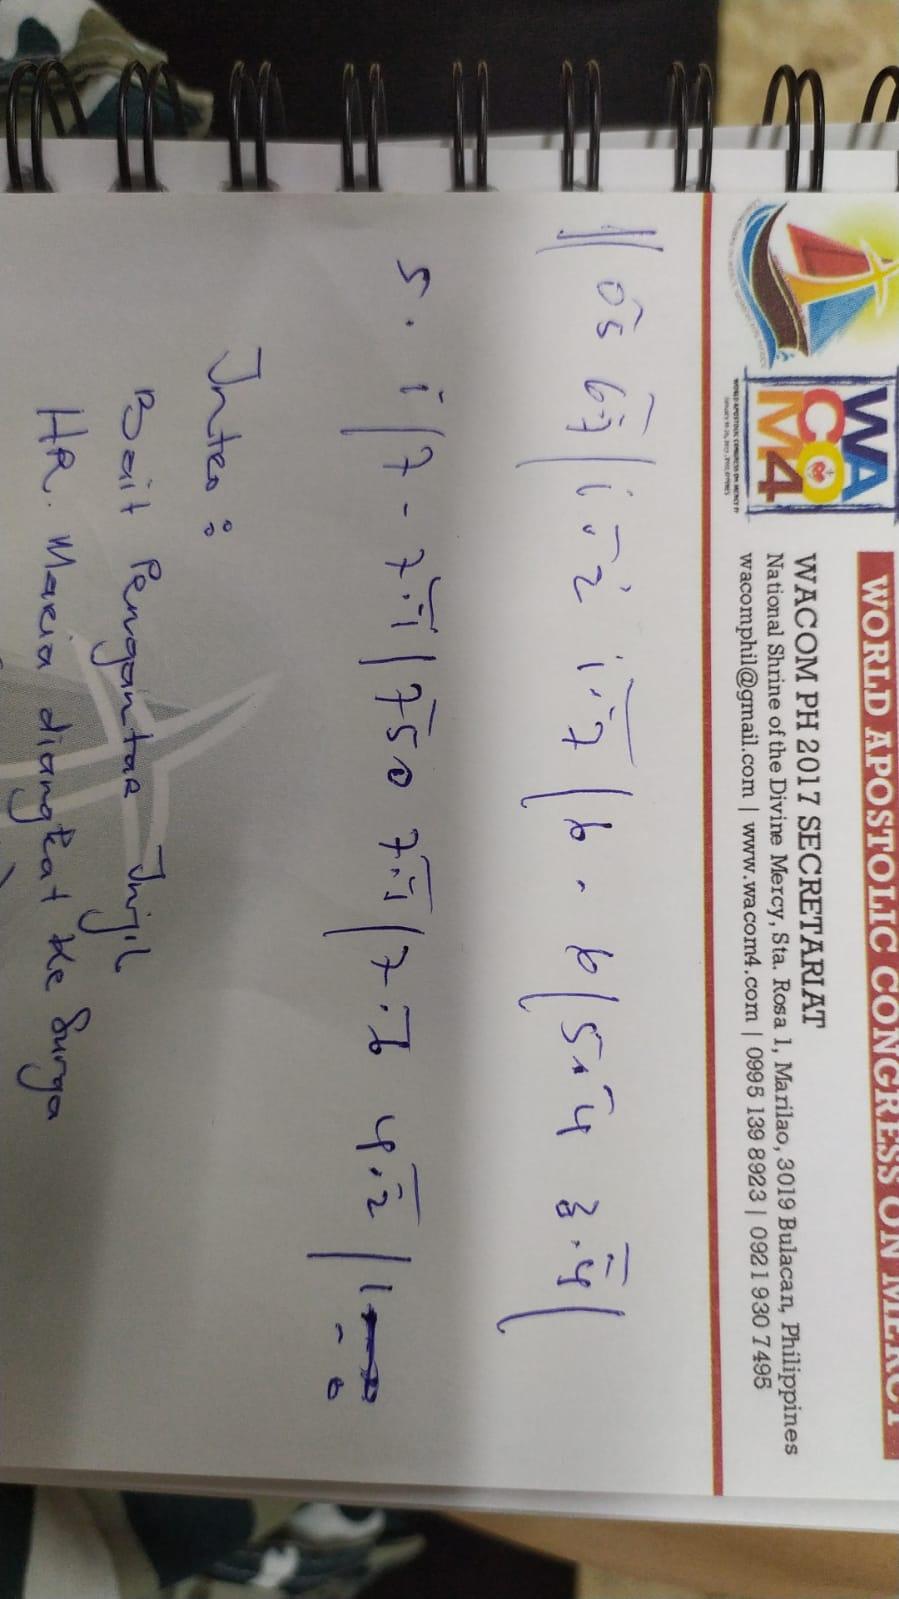 WORLD APOSTOLIC CONGRESS ON MERCY
WACOM4
WACOM PH 2017 SECRETARIAT
National Shrine of the Divine Mercy, Sta. Rosa 1, Marilao, 3019 Bulacan, Philippines
wacomphil@gmail.com | www.wacom4.com | 0995 139 8923 | 0921 930 7495
|| 05 6.7 | i . 2 i.7 | 6 . 6 | 5 . 4 3.4 |
5 . i | 7 . 7.1 | 75 0 7.1 | 7.6 4.2 | 1 . 0
Intro :
Bait Pengantar Injil
HR. Maria diangkat ke Surga